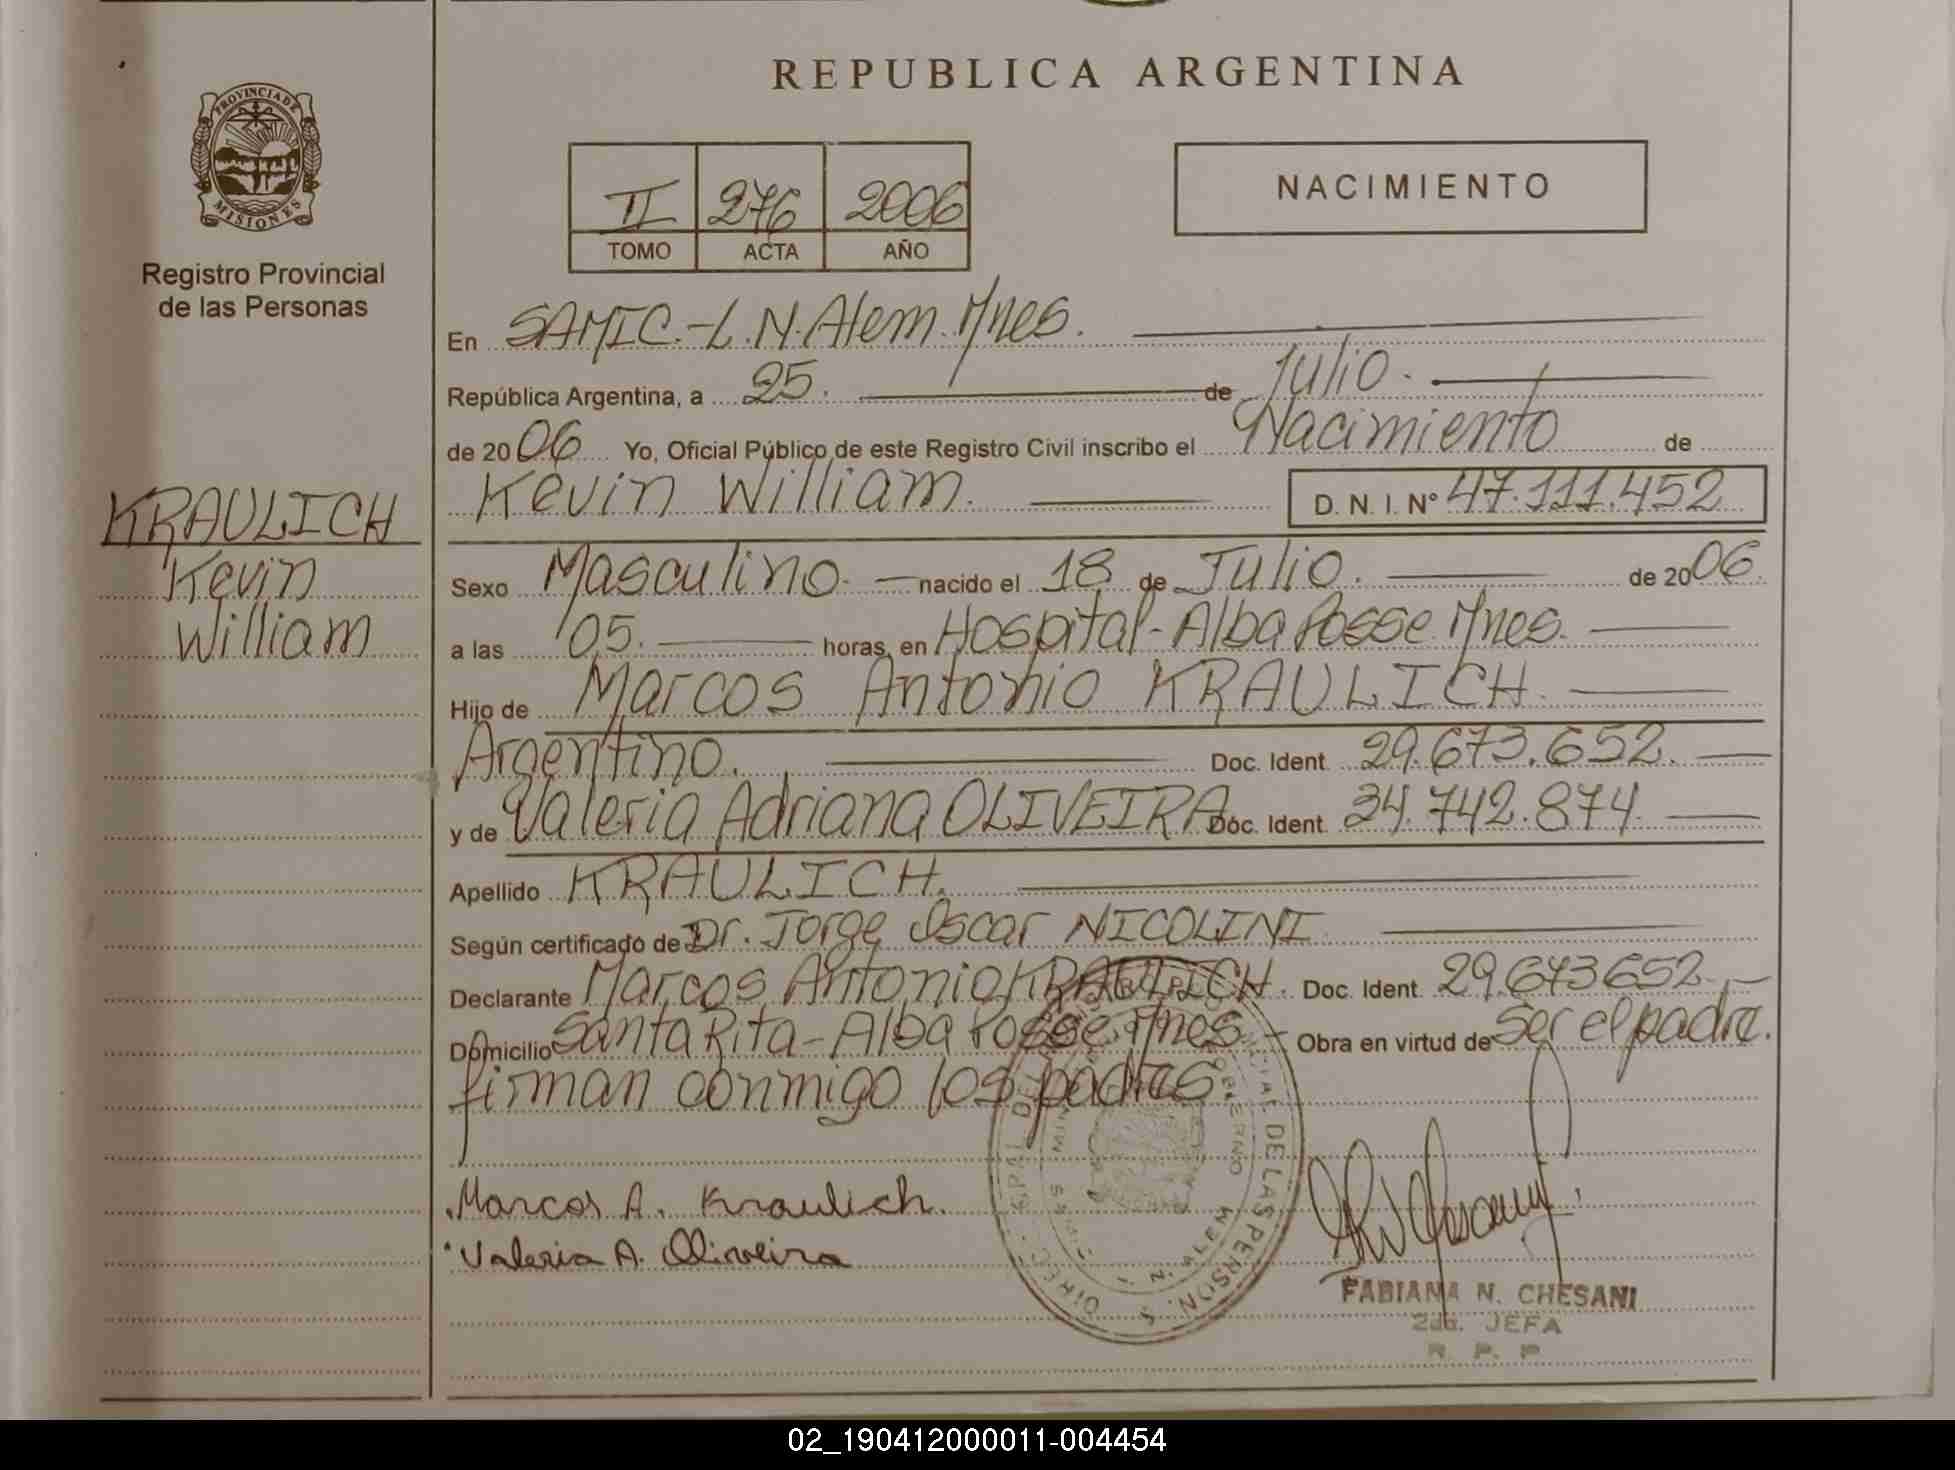 REPUBLICA ARGENTINA
PROVINCIA DE
MISIONES
Registro Provincial
de las Personas
II 276 2006
TOMO ACTA AÑO
NACIMIENTO
En SAMIC.-L.N.Alem.Mnes.
República Argentina, a 25. de Julio.
de 2006 Yo, Oficial Público de este Registro Civil inscribo el Nacimiento de
Kevin William. D. N. I. Nº 47.111.452
KRAULICH
Kevin
William
Sexo Masculino. nacido el 18 de Julio. de 2006.
a las 05. horas, en Hospital-Alba Posse Mnes.
Hijo de Marcos Antonio KRAULICH.
Argentino. Doc. Ident. 29.673.652.
y de Valeria Adriana OLIVEIRA Doc. Ident. 34.742.874.
Apellido KRAULICH.
Según certificado de Dr. Jorge Oscar NICOLINI
Declarante Marcos Antonio KRAULICH. Doc. Ident. 29.673652.
Domicilio Santa Rita-Alba Posse Mnes. Obra en virtud de Ser el padre.
firman conmigo los padres.
Marcos A. Kraulich.
Valeria A. Oliveira
DE LAS PERSONAS
N. ALEM
FABIANA N. CHESANI
2da. JEFA
R. P. P
02_190412000011-004454